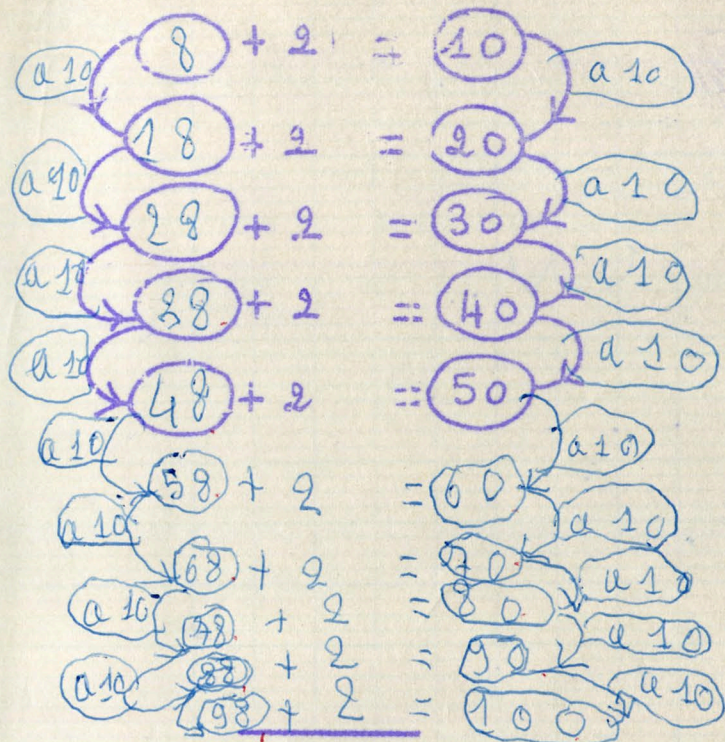 a 10 8 + 2 = 10 a 10
18 + 2 = 20
a 10 28 + 2 = 30 a 10
a 10 38 + 2 = 40 a 10
a 10 48 + 2 = 50 a 10
a 10 58 + 2 = 60 a 10
a 10 68 + 2 = 70 a 10
a 10 78 + 2 = 80 a 10
88 + 2 = 90 a 10
a 10 98 + 2 = 100 a 10